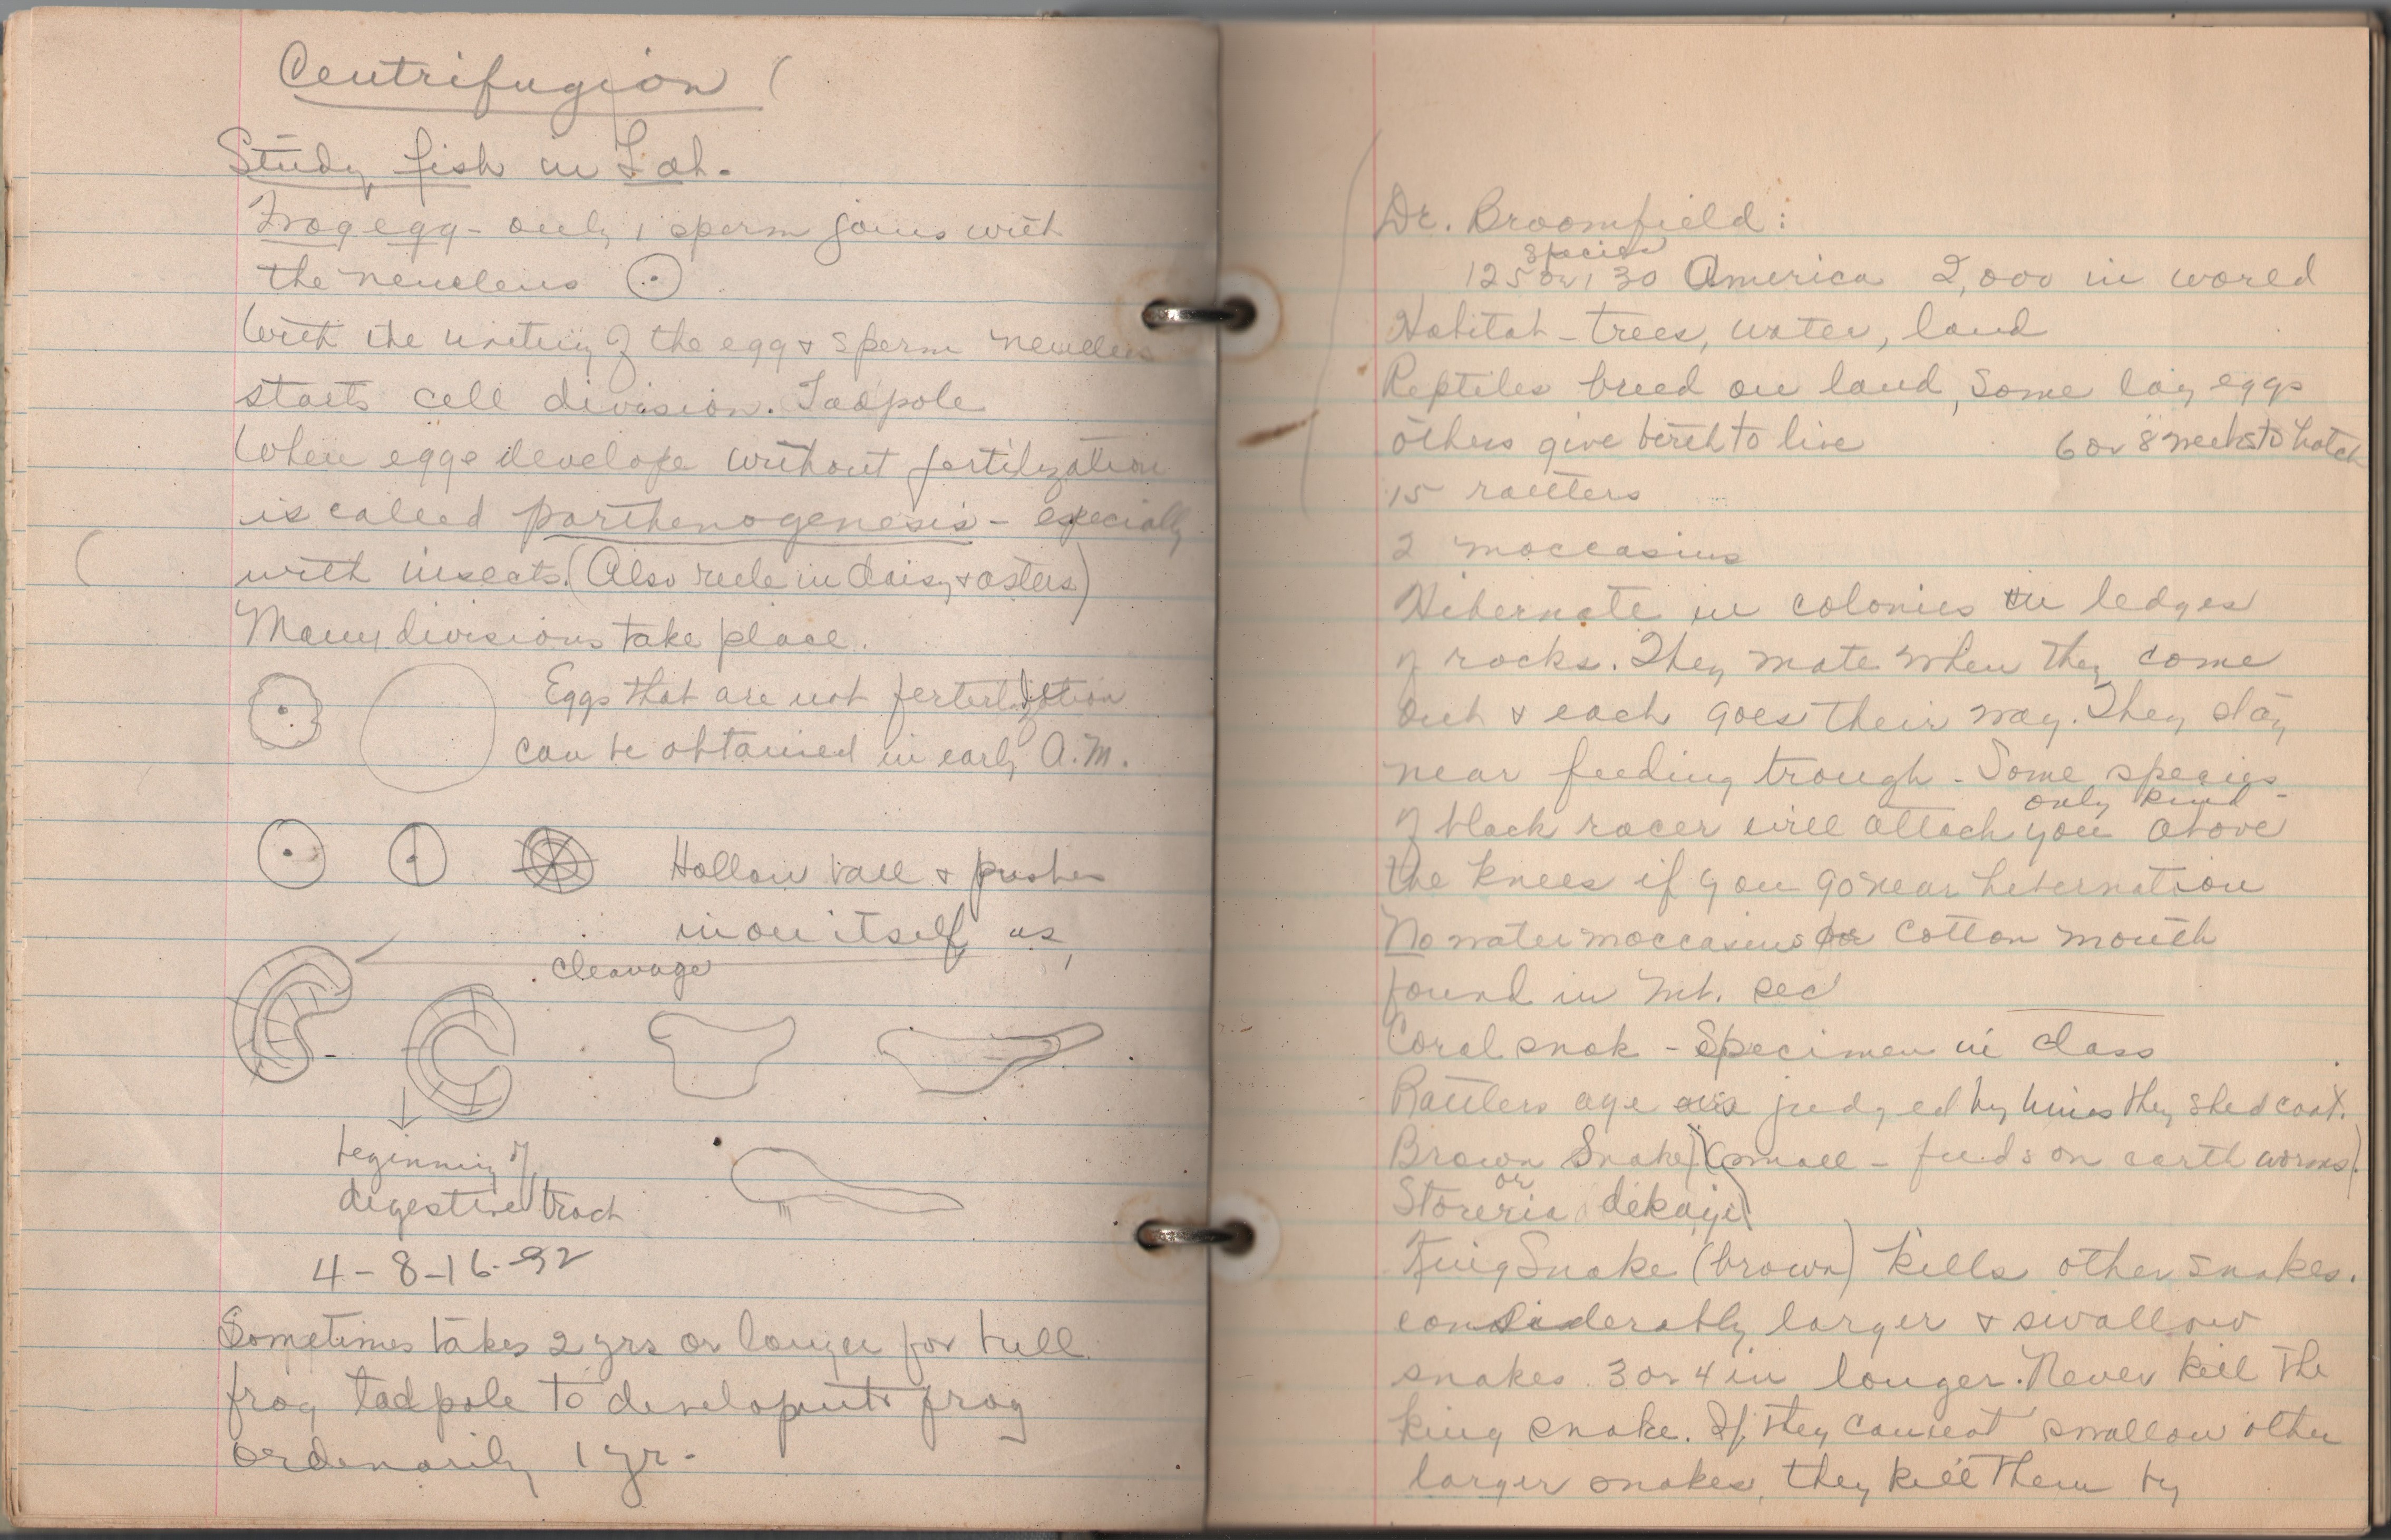 Centrifugion (
Study fish in Lab.
Frog egg - only 1 sperm joins with
the neucleus
With the uniting of the egg & sperm neucleus
starts cell division. Tadpole
When eggs develope without fertilization
is called parthenogenesis - especially
with insects. (Also rule in daisy & asters)
Many divisions take place.
Eggs that are not fertertilization
can be obtained in early A.M.
Hollow ball & pushes
in on itself as,
cleavage
beginning of
digestive tract
4-8-16-32
Sometimes takes 2 yrs or longer for bull
frog tadpole to develop into frog
ordenarily 1 yr.
Dr. Broomfield:
species
125 or 130 America 2,000 in world
Habitat - trees, water, land
Reptiles breed on land, some lay eggs
others give birth to live 6 or 8 weeks to hatch
15 rattlers
2 moccasins
Hibernate in colonies in ledges
of rocks. They mate when they come
out & each goes their way. They stay
near feeding trough - Some species
only kind -
of black racer will attack you above
the knees if you go near hibernation
No water moccasins or cotton mouth
found in Mt. sec
Coral snak - Specimen in class
Rattlers age is judged by times they shed coat.
Brown Snake) (small - feeds on earth worms).
or
Storeria dekayi)
King Snake (brown) kills other snakes.
considerably larger & swallow
snakes 3 or 4 in longer. Never kill the
king snake. If they cannot swallow other
larger snakes, they kill them by